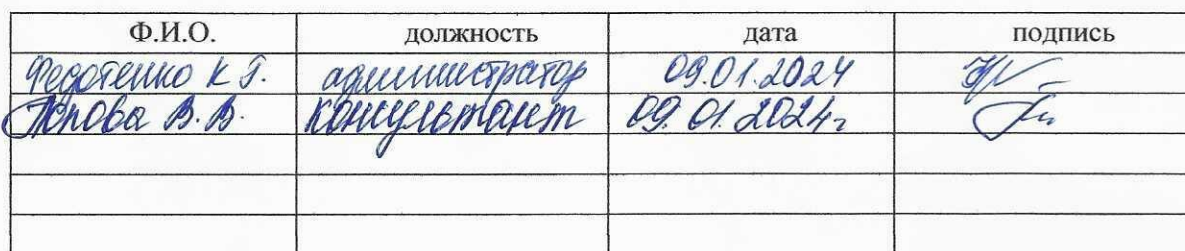 Ф.И.О. должность дата подпись
Федотенко К Г. администратор 09.01.2024
В.В. консультант 09.01.2024г